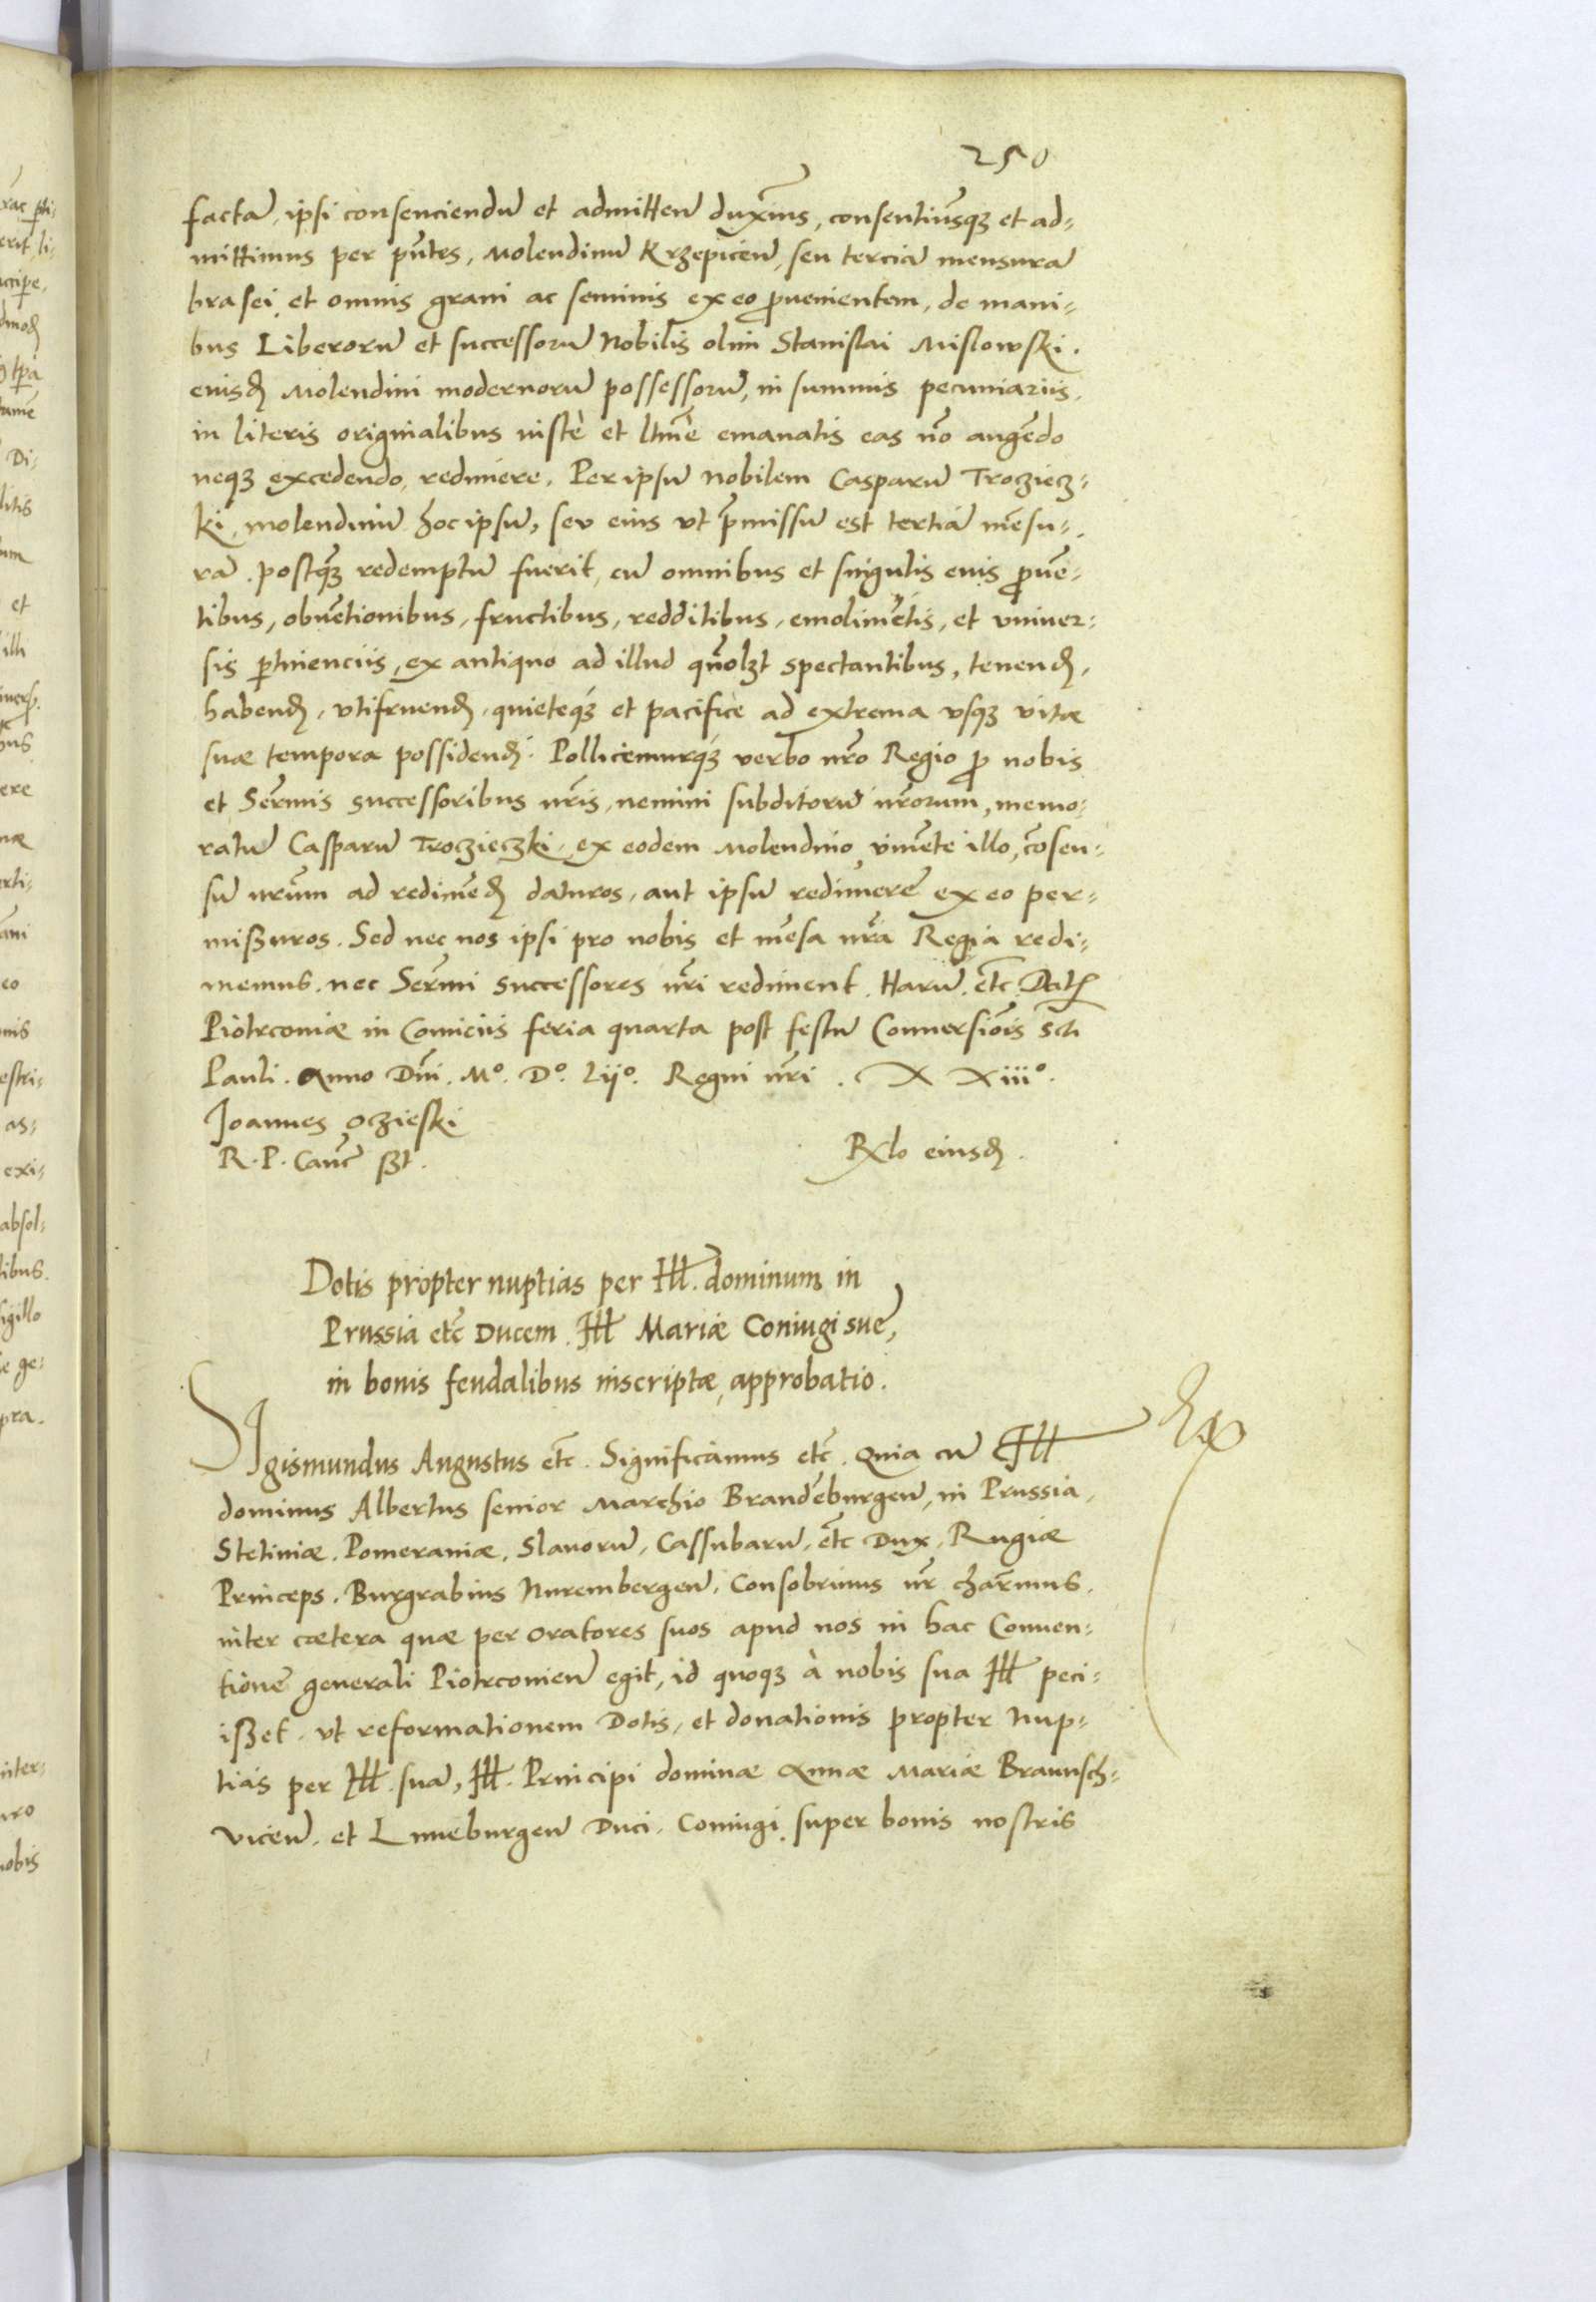 250
factā, ipsi consenciendū et admitteñ duximus, consentimusq3 et ad-
mittimus per pn̄tes, Molendinū Krzepiceñ, seu terciā mensurā
brasei, et omnis grani ac seminis ex eo ꝓuenientem, de mani-
bus Liberorū et successorū Nobilis olim Stanislai Mislowski.
eiusd̄ Molendini modernorū possessorū, in summis pecuniariis,
in literis originalibus iustè et ltīmè emanatis eas nō augēdo
neq3 excedendo, redimere. Per ipsū nobilem Casparū Trozziecz-
ki, molendinū hoc ipsū, seu eius vt p̄missū est tertiā mēsu-
rā, postq̄3 redemptū fuerit, cū omnibus et singulis eius ꝓuē-
tibus, obuētionibus, fructibus, redditibus, emolimētis, et vniuer-
sis ꝑtinenciis, ex antiquo ad illud qūolzt spectantibus, tenend̄,
habend̄, vtifruend̄, quieteq3 et pacificè ad extrema vsq3 vitæ
suæ tempora possidend̄. Pollicemurq3 verbo nr̄o Regio ꝓ nobis
et Serm̄is successoribus nr̄is, nemini subditorū nr̄orum, memo-
ratū Casparū Troczieczki, ex eodem Molendino, viuēte illo, cōsen-
sū nr̄um ad redimēd̄ daturos, aut ipsū redimere ex eo per-
mißuros. Sed nec nos ipsi pro nobis et mēsa nr̄a Regia redi-
memus, nec Serm̄i successores nr̄i rediment. Harū etc̄ Datꝭ
Piotrconiæ in Comiciis feria quarta post festū Conuersiōis Scti
Pauli. Anno Dn̄i. Mº. Dº. Lijº. Regni nr̄i. X Xiiiº.
Joannes Oczieski
R. P. Canc̄ sst.
Rƚlo eiusd̄.
Dotis propter nuptias per Ill. dominum in
Prussia etc̄ Ducem Ill Mariæ Coniugi suę,
in bonis feudalibus inscriptæ, approbatio.
SIgismundus Augustus etc̄. Significamus etc̄. Quia cū Ill
dominus Albertus senior Marchio Brandēburgeñ, in Prussia,
Stetiniæ, Pomeraniæ, Slauorū, Cassubarū, etc̄ Dux, Rugiæ
Princeps, Burgrabius Nurembergeñ, Consobrinus nr̄ charm̄us,
inter cætera quæ per Oratores suos apud nos in hac Conuen-
tione generali Piotrconieñ egit, id quoq3 à nobis sua Ill peci-
ißet, vt reformationem Dotis, et donationis propter Nup-
tias per Ill. suā, Ill. Principi dominæ Annæ Mariæ Braunsch-
viceñ, et Luneburgeñ Duci, Coniugi, super bonis nostris